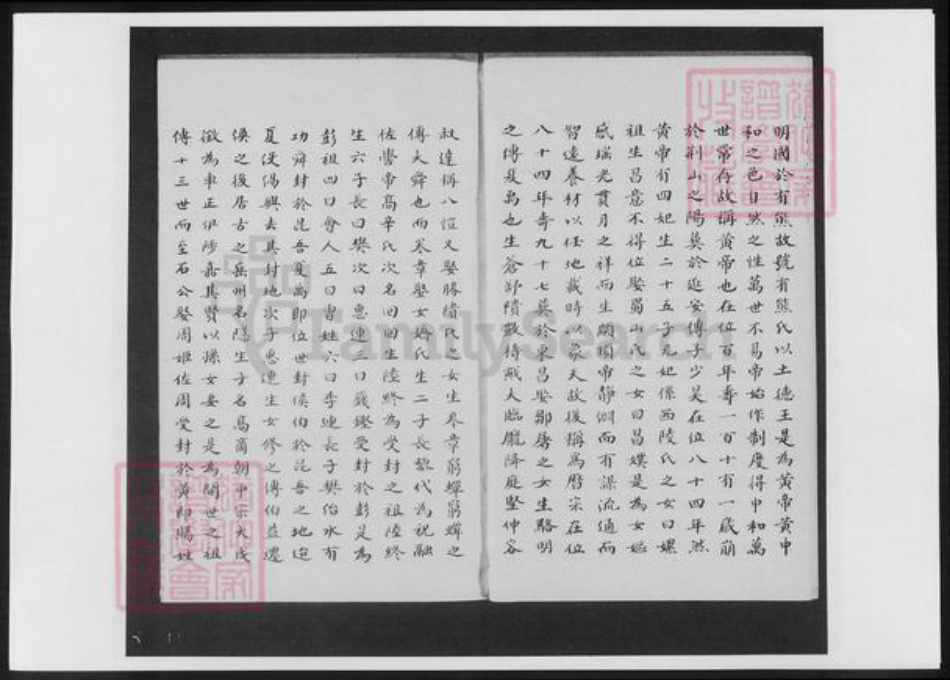 明國於有熊故號有熊氏以土德王是為黃帝黃中
和之色自然之性萬世不易帝始作制度得中和萬
世常存故稱黃帝也在位百年壽一百十有一歲崩
於荆山之陽葬於延安傳子少昊在位八十四年然
黃帝有四妃生二十五子元妃係西陵氏之女曰嫘
祖生昌意不得位娶蜀山氏之女曰昌媄是為女
感瑤光貫月之祥而生顓頊帝靜淵而有謀流通而
智遠養材以任地載時以象天故後稱為曆宗在位
八十四年壽九十七葬於東昌娶鄒屠之女生駱明
之傳夏禹也生蒼舒隤敳檮戭大臨龐降庭堅仲容
叔達稱八愷又娶勝隤氏之女生卷章窮蟬窮蟬之
傳大舜也而卷章娶女嬌氏生二子長黎代為祝融
佐嚳帝高辛氏次名回回生陸終為受封之祖陸終
生六子長曰樊次曰惠連三曰籛鏗受封於彭是為
彭祖四曰會人五曰曹姓六曰季連長子樊治水有
功舜封於昆吾夏禹即位世封侯伯於昆吾之地迨
夏後傷興去其封地次子惠連生女修之傳伯益還
侯之後居古之岳州名隱生子名高商朝中宗大戊
徵為車正伊陟嘉其賢以孫女妻之是為開世之祖
傳十三世而至石公娶周姬佐周受封於黃即賜姓
FamilySearch